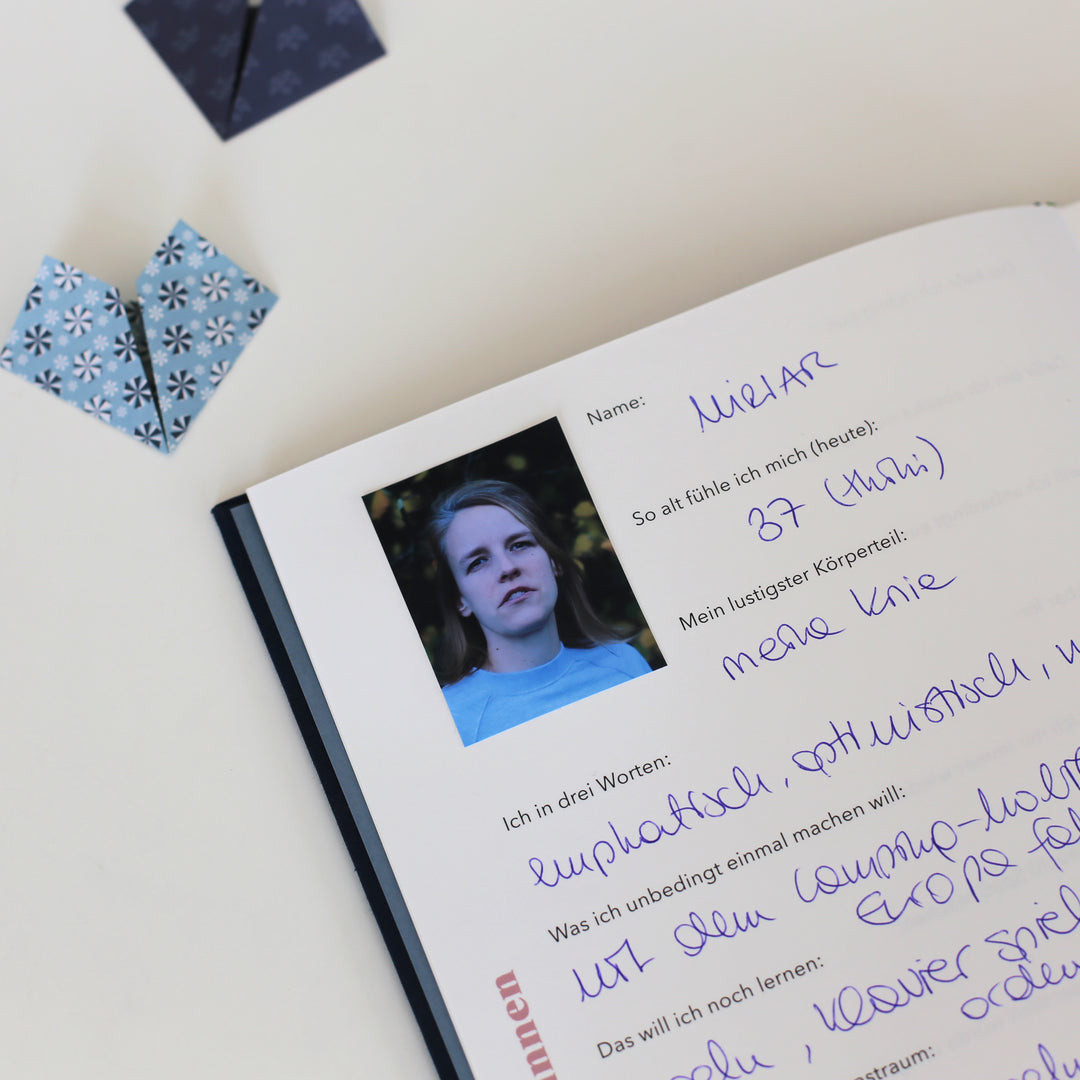 Name: MIRIAR
So alt fühle ich mich (heute):
37 (hihi)
Mein lustigster Körperteil:
meine Knie
Ich in drei Worten:
emphatisch, optimistisch,
Was ich unbedingt einmal machen will:
mit dem Camping-Mobil
Europa
Das will ich noch lernen:
, Klavier
nstraum:
nnen